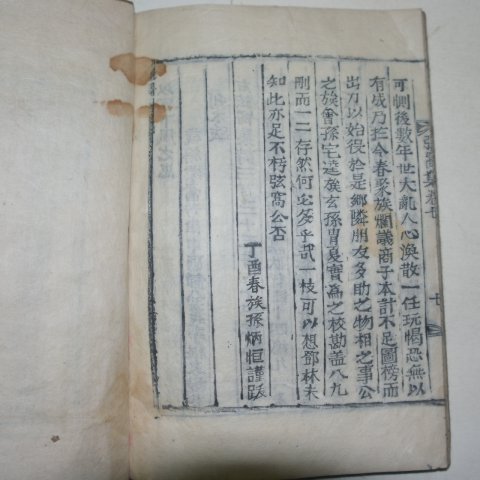 可惻後數年世大亂人心渙散一任玩愒恐無以
有成乃於今春聚族爛議商子本計不足圖榜而
出力以始役於是鄉隣朋友多助之物相之事公
之族曾孫宅逵族玄孫胄夏實爲之校勘盖八九
剛而一二存然何必多乎哉一枝可以想鄧林未
知此亦足不朽弦窩公否
丁酉春族孫炳恒謹跋
弦窩集卷七
七